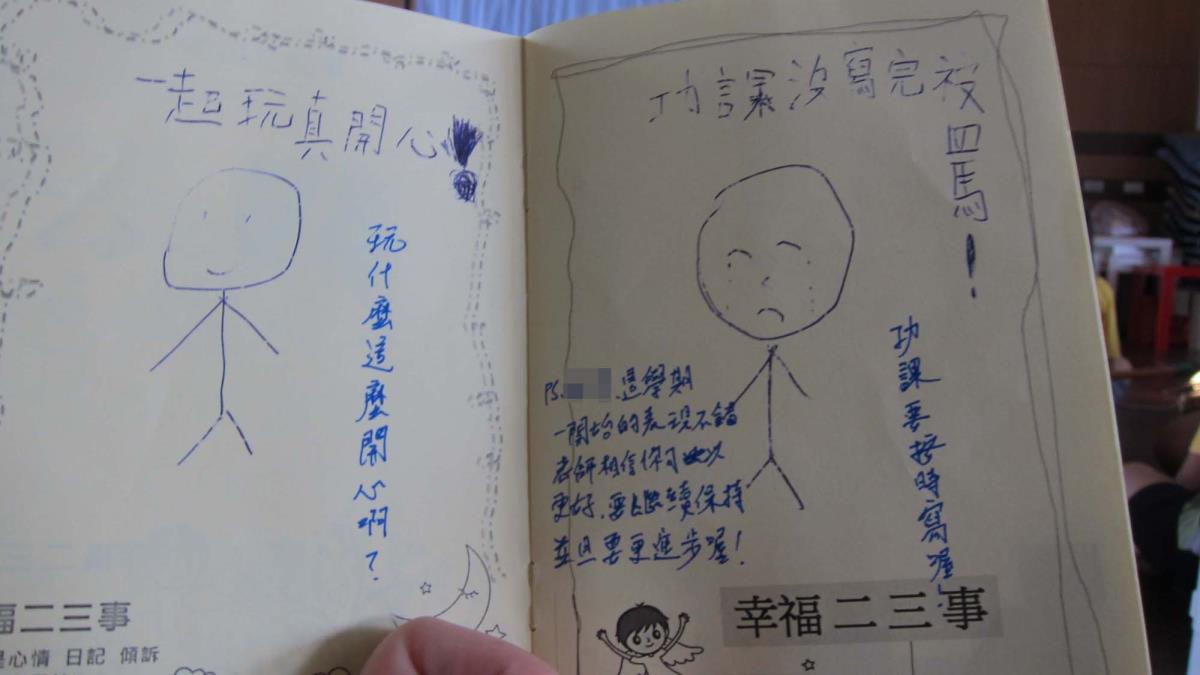 一起玩真開心!
玩什麼這麼開心啊?
福二三事
心情 日記 傾訴
功課沒寫完被
罵!
功課要按時寫喔!
PS. 這學期
一開始的表現不錯
老師相信你可以
更好,要繼續保持
並且要更進步喔!
幸福二三事